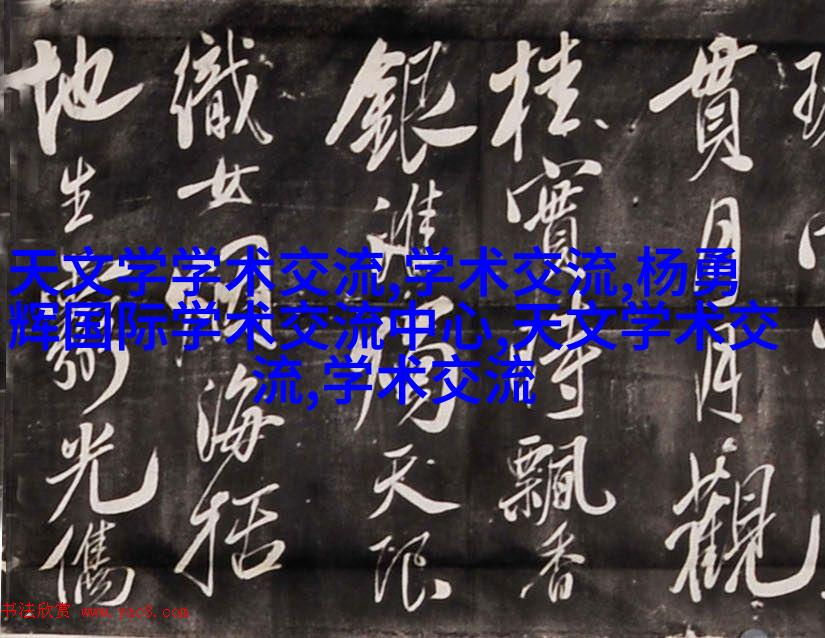 天文学学术交流,学术交流,杨勇
辉国际学术交流中心,天文学术交
流,学术交流
貫月月觀
桂實時飄香
銀天限
織女海
地生光儁
书法欣赏 www.yac8.com